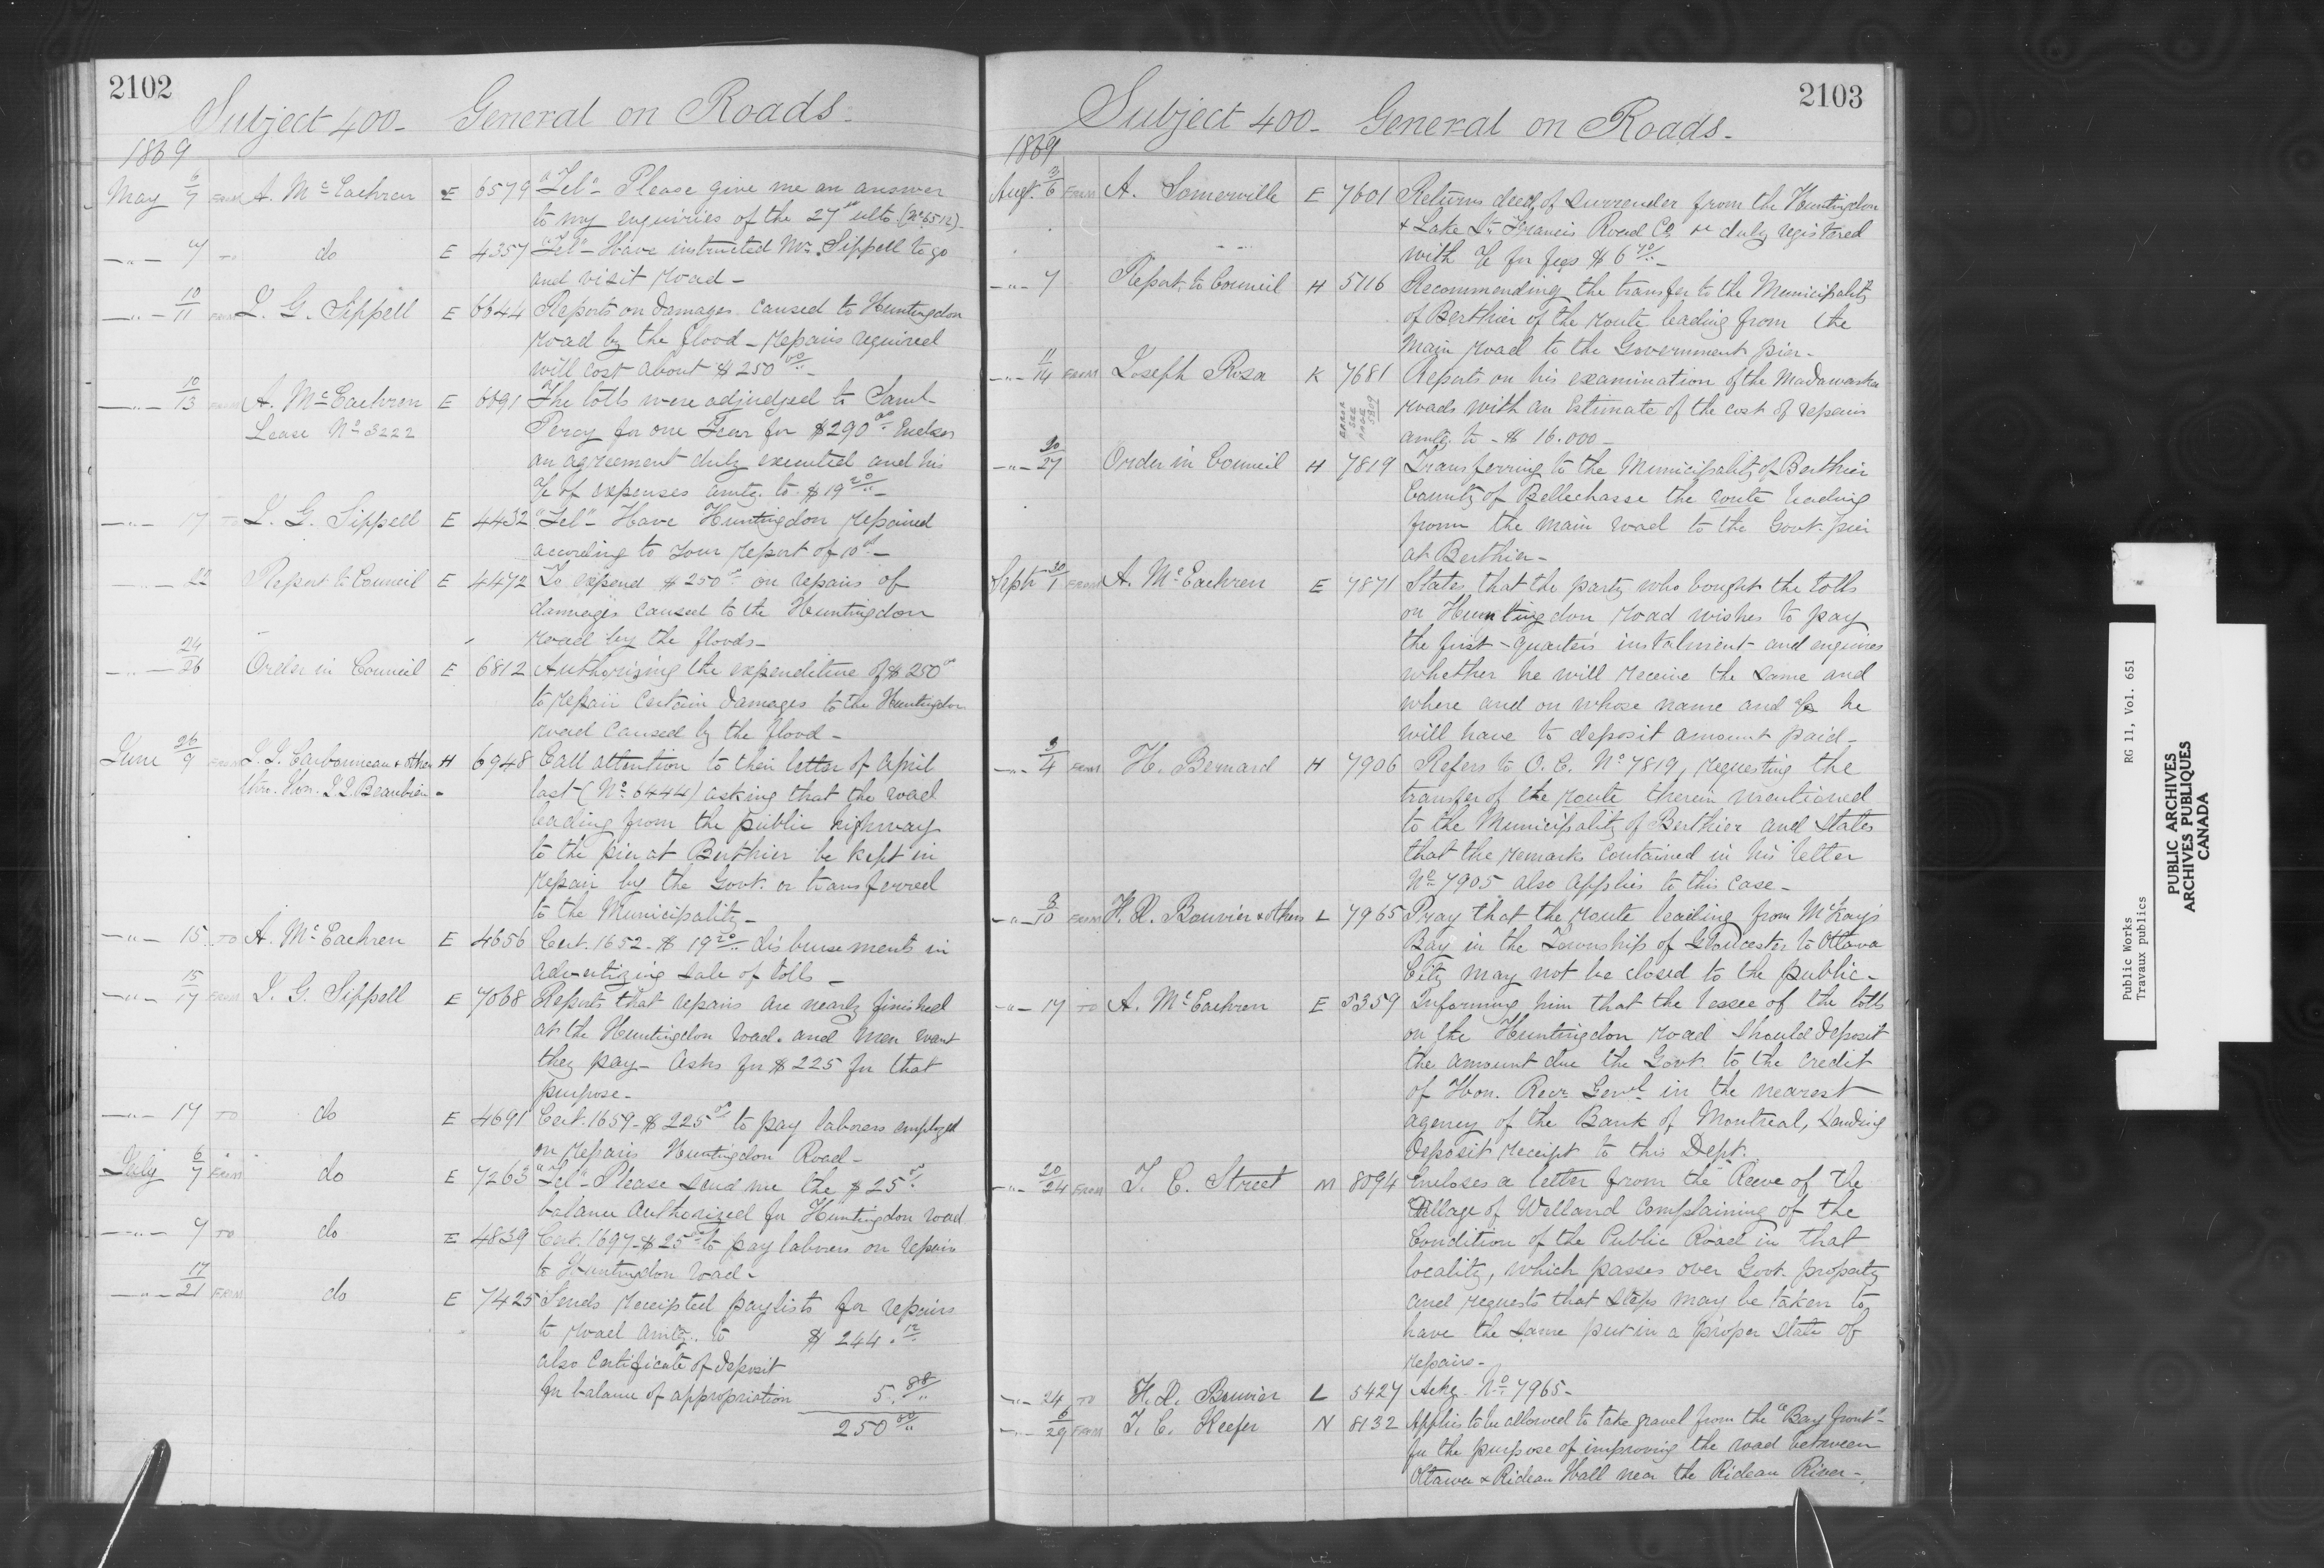 2102
Subject 400 - General on Roads -
1869
May 6/7 FROM A. McEachren E 6579 "Tel" - Please give me an answer
to my enquiries of the 27th ulto. (No 6512)
" 7 TO do E 4357 "Tel" - Have instructed Mr. Sippell to go
and visit road -
" 10/11 FROM J. G. Sippell E 6644 Reports on damages caused to Huntingdon
road by the flood - repairs required
will cost about $250 00/.. -
" 10/13 FROM A. McEachren E 6691 The tolls were adjudged to Saml
Lease No 3222 Percy for one Year for $290 00/.. Encloses
an agreement duly executed and his
a/c of expenses amtg. to $19 20/.. -
" 17 TO J. G. Sippell E 4432 "Tel" - Have Huntingdon repaired
according to your report of 10th -
" 22 Report to Council E 4472 To expend $250 00/.. on repairs of
damages caused to the Huntingdon
road by the floods -
" 24/26 Order in Council E 6812 Authorizing the expenditure of $250 00
to repair certain damages to the Huntingdon
road caused by the flood -
June 26/9 FROM Carbonneau & others H 6948 Call attention to their letter of April
thro. Hon. Beaubien - last (No 6444) asking that the road
leading from the public highway
to the pier at Berthier be kept in
repair by the Govt. or transferred
to the Municipality -
" 15 TO A. McEachren E 4656 Cert. 1652 - $19 20/.. disbursements in
advertizing sale of tolls -
" 15/17 FROM J. G. Sippell E 7068 Reports that repairs are nearly finished
at the Huntingdon road. and men want
they pay - asks for $225 for that
purpose -
" 17 TO do E 4691 Cert. 1659 - $225 00/.. to pay laborers employed
on repairs Huntingdon Road -
July 6/7 FROM do E 7263 "Tel" - Please send me the $25 00/..
balance authorized for Huntingdon road
" 7 TO do E 4839 Cert. 1697 - $25 00/.. to pay laborers on repairs
to Huntingdon road -
" 17/21 FROM do E 7425 Sends receipted paylists for repairs
to road amtg. to $ 244. 12/..
also Certificate of deposit
for balance of appropriation 5. 88/..
250 00/..
2103
Subject 400 - General on Roads -
1869
Augt. 3/6 FROM A. Somerville E 7601 Returns deed of Surrender from the Huntingdon
& Lake St. Francis Road Co. duly registered
with a/c for fees $6 70/.. -
" 7 Report to Council H 5116 Recommending the transfer to the Municipality
of Berthier of the route leading from the
Main road to the Government pier -
" 11/14 FROM Joseph Rosa K 7681 Reports on his examination of the Madawaska
roads with an Estimate of the cost of repairs
amtg. to - $ 16.000 -
" 20/27 Order in Council H 7819 Transferring to the Municipality of Berthier
County of Bellechasse the route leading
from the main road to the Govt. pier
at Berthier -
Septr 30/1 FROM A. McEachren E 7871 States that the party who bought the tolls
on Huntingdon road wishes to pay
the first quarter's instalment and enquires
whether he will receive the same and
where and on whose name and a/c he
will have to deposit amount paid -
" 3/4 FROM H. Bernard H 7906 Refers to O. C. No 7819, requesting the
transfer of the route therein mentioned
to the Municipality of Berthier and States
that the remarks contained in his letter
No 7905 also applies to this case -
" 8/10 FROM H. R. Bouvier & others L 7965 Pray that the route leading from McKay's
Bay in the Township of Gloucester to Ottawa
City may not be closed to the public -
" 17 TO A. McEachren E 5359 Informing him that the lessee of the tolls
on the Huntingdon road should deposit
the amount due the Govt. to the credit
of Hon. Recr. Genl. in the nearest
agency of the Bank of Montreal, sending
deposit receipt to this Dept.
" 20/24 FROM T. C. Street M 8094 Encloses a letter from the Reeve of the
Village of Welland Complaining of the
Condition of the Public Road in that
locality, which passes over Govt. property
and requests that steps may be taken to
have the same put in a proper state of
repairs -
" 24 TO H. R. Bouvier L 5427 Ackg. No. 7965 -
" 6/29 FROM T. C. Keefer N 8132 Applies to be allowed to take gravel from the "Bay front"
for the purpose of improving the road between
Ottawa & Rideau Hall near the Rideau River -
Public Works RG 11, Vol. 651
Travaux publics
PUBLIC ARCHIVES
ARCHIVES PUBLIQUES
CANADA